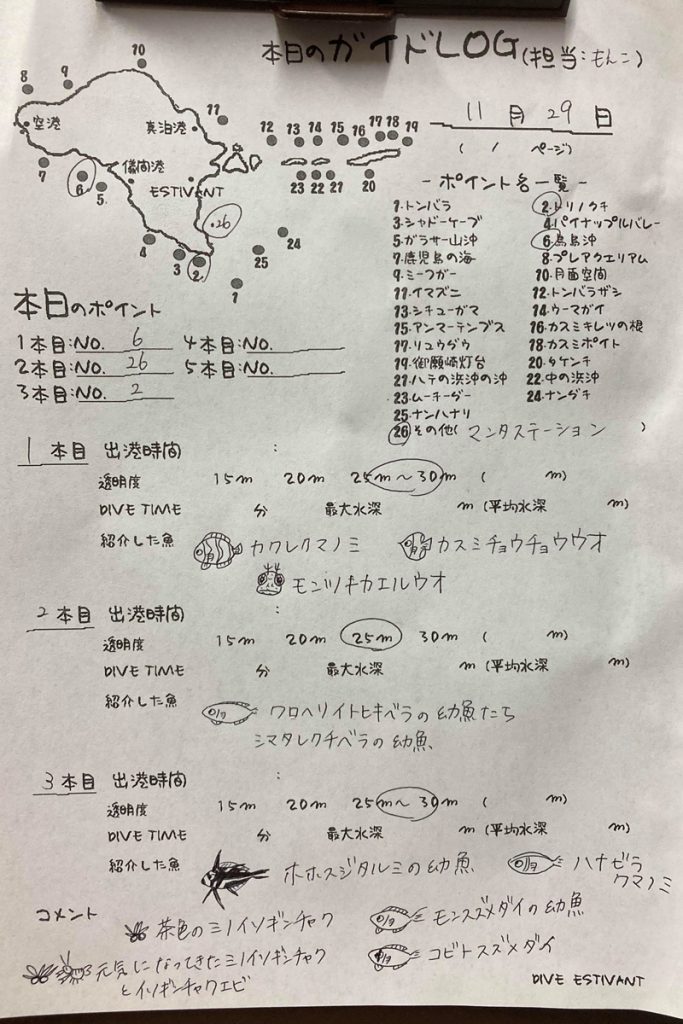 本日のガイドLOG(担当:もんこ)
11月29日
( / ページ)
10
8
9
空港
真泊港
11
12 13 14 15 16 17 18 19
儀間港
7
6.
5.
ESTIVANT
23 22 21
20
.26
24
4
3
2.
25
1
- ポイント名一覧 -
1.トンバラ 2.トリノクチ
3.シャドーケーブ 4.パイナップルバレー
5.ガラサー山沖 6.鳥島沖
7.鹿児島の海 8.プレアクエリアム
9.ミーフガー 10.月面空間
11.イマズニ 12.トンバラザシ
13.シチューガマ 14.ウーマガイ
15.アンマーテンブス 16.カスミキレツの根
17.リュウグウ 18.カスミポイト
19.御願崎灯台 20.タケンチ
21.ハテの浜沖の沖 22.中の浜沖
23.ムーチーグー 24.ナングチ
25.ナンハナリ
26 その他( マンタステーション )
本日のポイント
1本目:NO. 6 4本目:NO.
2本目:NO. 26 5本目:NO.
3本目:NO. 2
1本目 出港時間 :
透明度 15m 20m 25m〜30m ( m)
DIVE TIME 分 最大水深 m (平均水深 m)
紹介した魚 カクレクマノミ カスミチョウチョウウオ
モンツキカエルウオ
2本目 出港時間 :
透明度 15m 20m 25m 30m ( m)
DIVE TIME 分 最大水深 m (平均水深 m)
紹介した魚 クロヘリイトヒキベラの幼魚たち
シマタレクチベラの幼魚
3本目 出港時間 :
透明度 15m 20m 25m〜30m ( m)
DIVE TIME 分 最大水深 m (平均水深 m)
紹介した魚 ホホスジタルミの幼魚 ハナビラ
クマノミ
コメント 茶色のミノイソギンチャク モンスズメダイの幼魚
元気になってきたミノイソギンチャク コビトスズメダイ
とイソギンチャクエビ
DIVE ESTIVANT